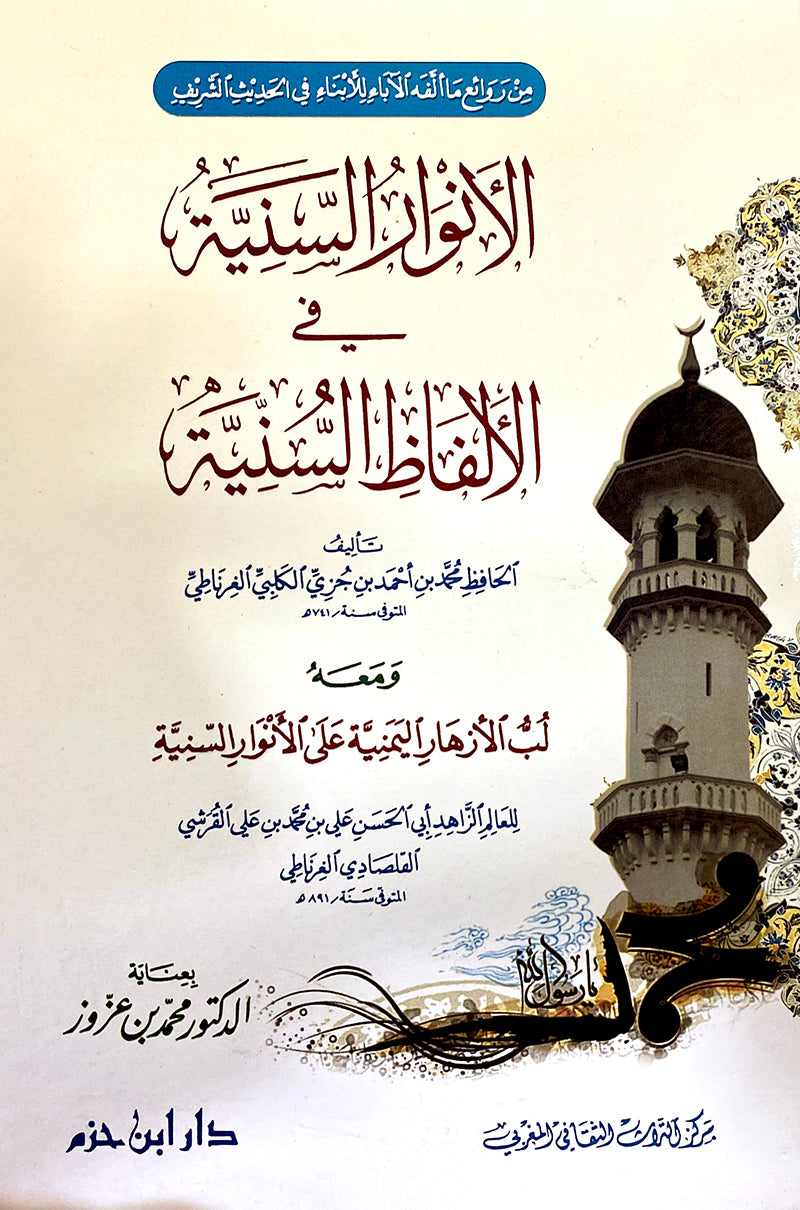 مِنْ رَوَائِعِ مَا أَلَّفَهُ الْآبَاءُ لِلْأَبْنَاءِ فِي الْحَدِيثِ الشَّرِيفِ
الأَنْوَارُ السَّنِيَّةُ
فِي
الأَلْفَاظِ السُّنِّيَّةُ
تَأْلِيفُ
الحَافِظِ مُحَمَّد بن أَحْمَد بن جُزَيِّ الكَلْبِيِّ الغِرنَاطِيِّ
المتوفى سنة / ٧٤١هـ
وَمَعَهُ
لُبُّ الأَزهَارِ اليَمَنِيَّة عَلَىٰ الأَنْوَارِ السَّنِيَّةِ
لِلعَالِمِ الزَّاهِدِ أَبِي الحَسَنِ عَلي بن مُحَمَّد بن عَلي القُرَشي
القلصَادِي الغِرنَاطِي
المتوفى سَنَة / ٨٩١هـ
بِعِنَايَة
الدكتور محمّد بن عزّوز
محمد
يا رسول الله
مركز التراث الثقافي المغربي
دار ابن حزم